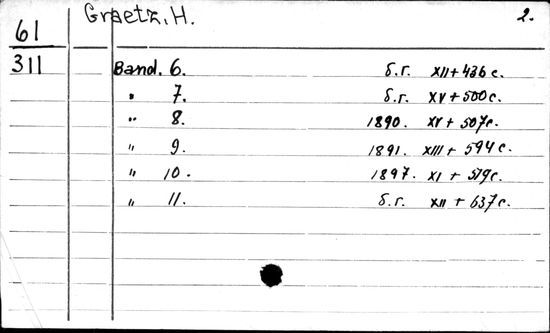 Graetz, H. 2.
61
311 Band. 6. б.г. XII + 436 с.
" 7. б.г. XV + 500 с.
" 8. 1890. XV + 507 с.
" 9. 1891. XIII + 594 с.
" 10. 1897. XI + 519 с.
" 11. б.г. XII + 637 с.